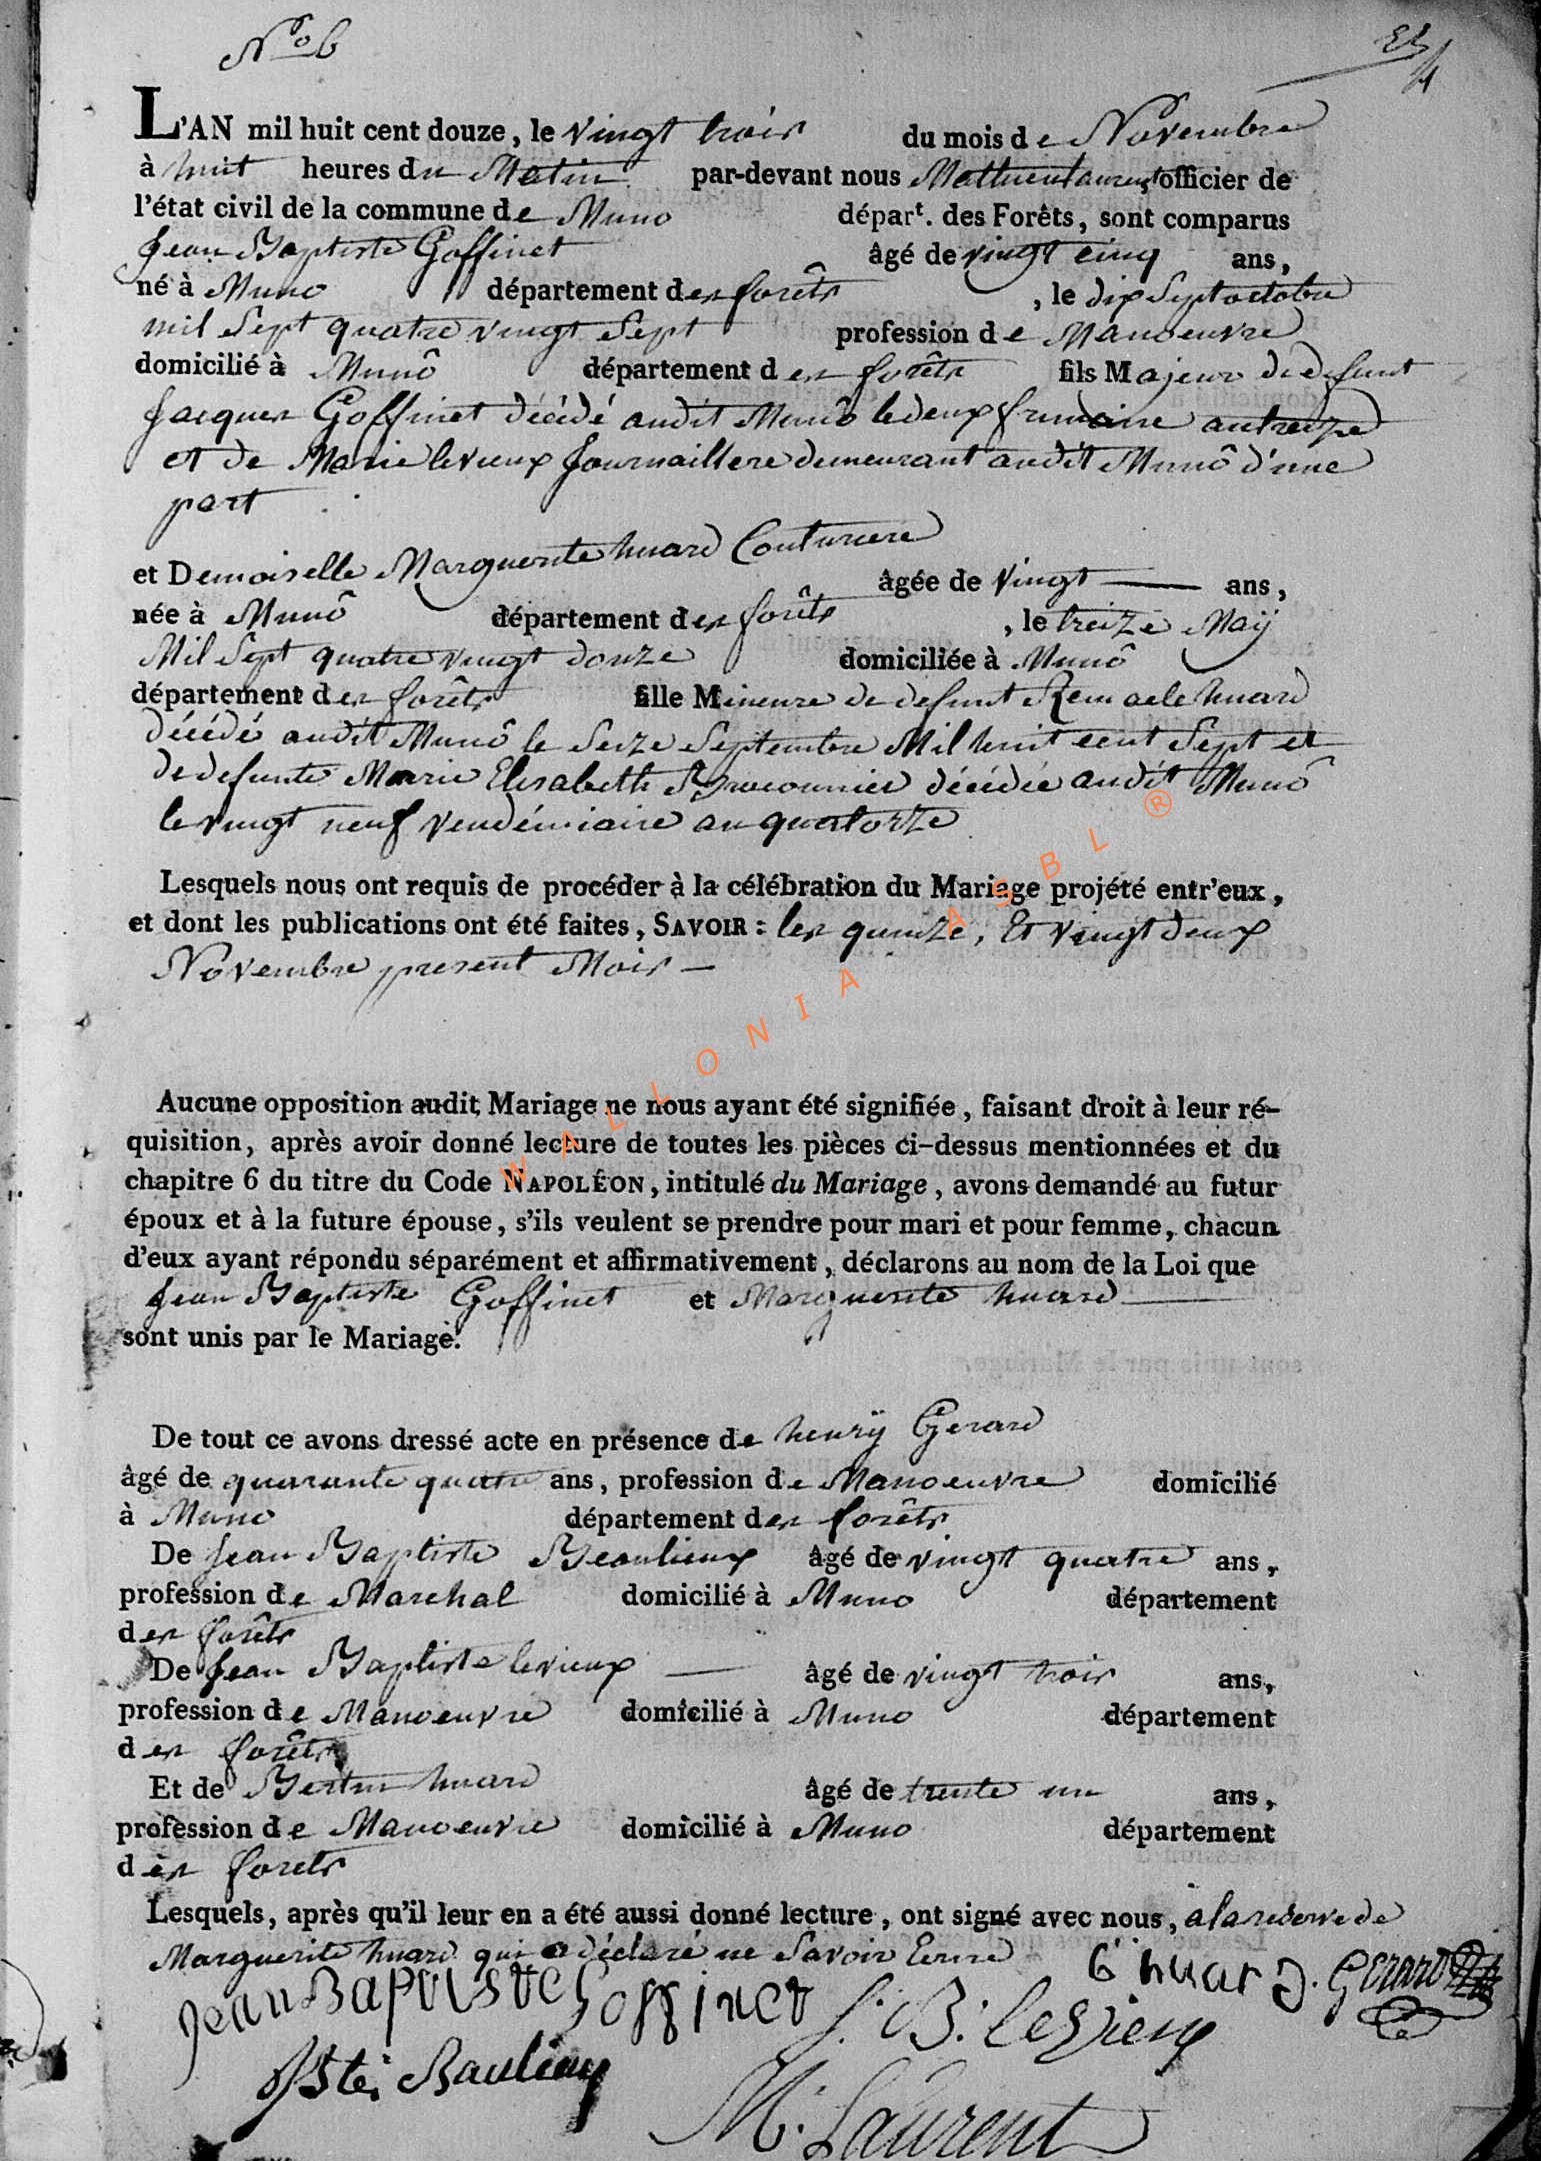 N.º 6
L'AN mil huit cent douze, le vingt trois du mois de Novembre
à huit heures du Matin par-devant nous Mathieu Laurent officier de
l'état civil de la commune de Muno départ. des Forêts, sont comparus
Jean Baptiste Goffinet âgé de vingt cinq ans,
né à Muno département des forêts, le dix Sept octobre
mil Sept quatre vingt Sept profession de Manoeuvre
domicilié à Munô département des forêts fils Majeur de defunt
Jacques Goffinet décédé audit Munô le deux frimaire an treize
et de Marie levieux Journaillere demeurant audit Munô d'une
part
et Demoiselle Marguerite huard Couturiere âgée de Vingt ans,
née à Munô département des forêts, le treize Maÿ
Mil Sept quatre vingt douze domiciliée à Munô
département des forêts fille Mineure de defunt Remacle huard
décédé audit Munô le Seize Septembre Mil huit cent Sept et
de defunte Marie Elisabeth Braconnier décédée audit Munô
le vingt neuf vendémiaire an quatorze
Lesquels nous ont requis de procéder à la célébration du Mariage projété entr'eux,
et dont les publications ont été faites, SAVOIR : les quinze, Et vingt deux
Novembre present Mois —
Aucune opposition audit Mariage ne nous ayant été signifiée, faisant droit à leur ré-
quisition, après avoir donné lecture de toutes les pièces ci-dessus mentionnées et du
chapitre 6 du titre du Code NAPOLÉON, intitulé du Mariage, avons demandé au futur
époux et à la future épouse, s'ils veulent se prendre pour mari et pour femme, chacun
d'eux ayant répondu séparément et affirmativement, déclarons au nom de la Loi que
Jean Baptiste Goffinet et Marguerite huard
sont unis par le Mariage.
De tout ce avons dressé acte en présence de henrÿ Gerard
âgé de quarante quatre ans, profession de Manoeuvre domicilié
à Muno département des forêts
De Jean Baptiste Beaulieux âgé de vingt quatre ans,
profession de Marchal domicilié à Muno département
des forêts
De Jean Baptiste levieux — âgé de vingt trois ans,
profession de Manoeuvre domicilié à Muno département
des forêts
Et de Bertin huard âgé de trente un ans,
profession de Manoeuvre domicilié à Muno département
des forets
Lesquels, après qu'il leur en a été aussi donné lecture, ont signé avec nous, a la reserve de
Marguerite huard qui a déclaré ne Savoir Ecrire
B huard. Gerard
Jean Baptiste Goffinet J. B. Levieux
Bte. Baulieux
M. Laurent
WALLONIA ASBL ®